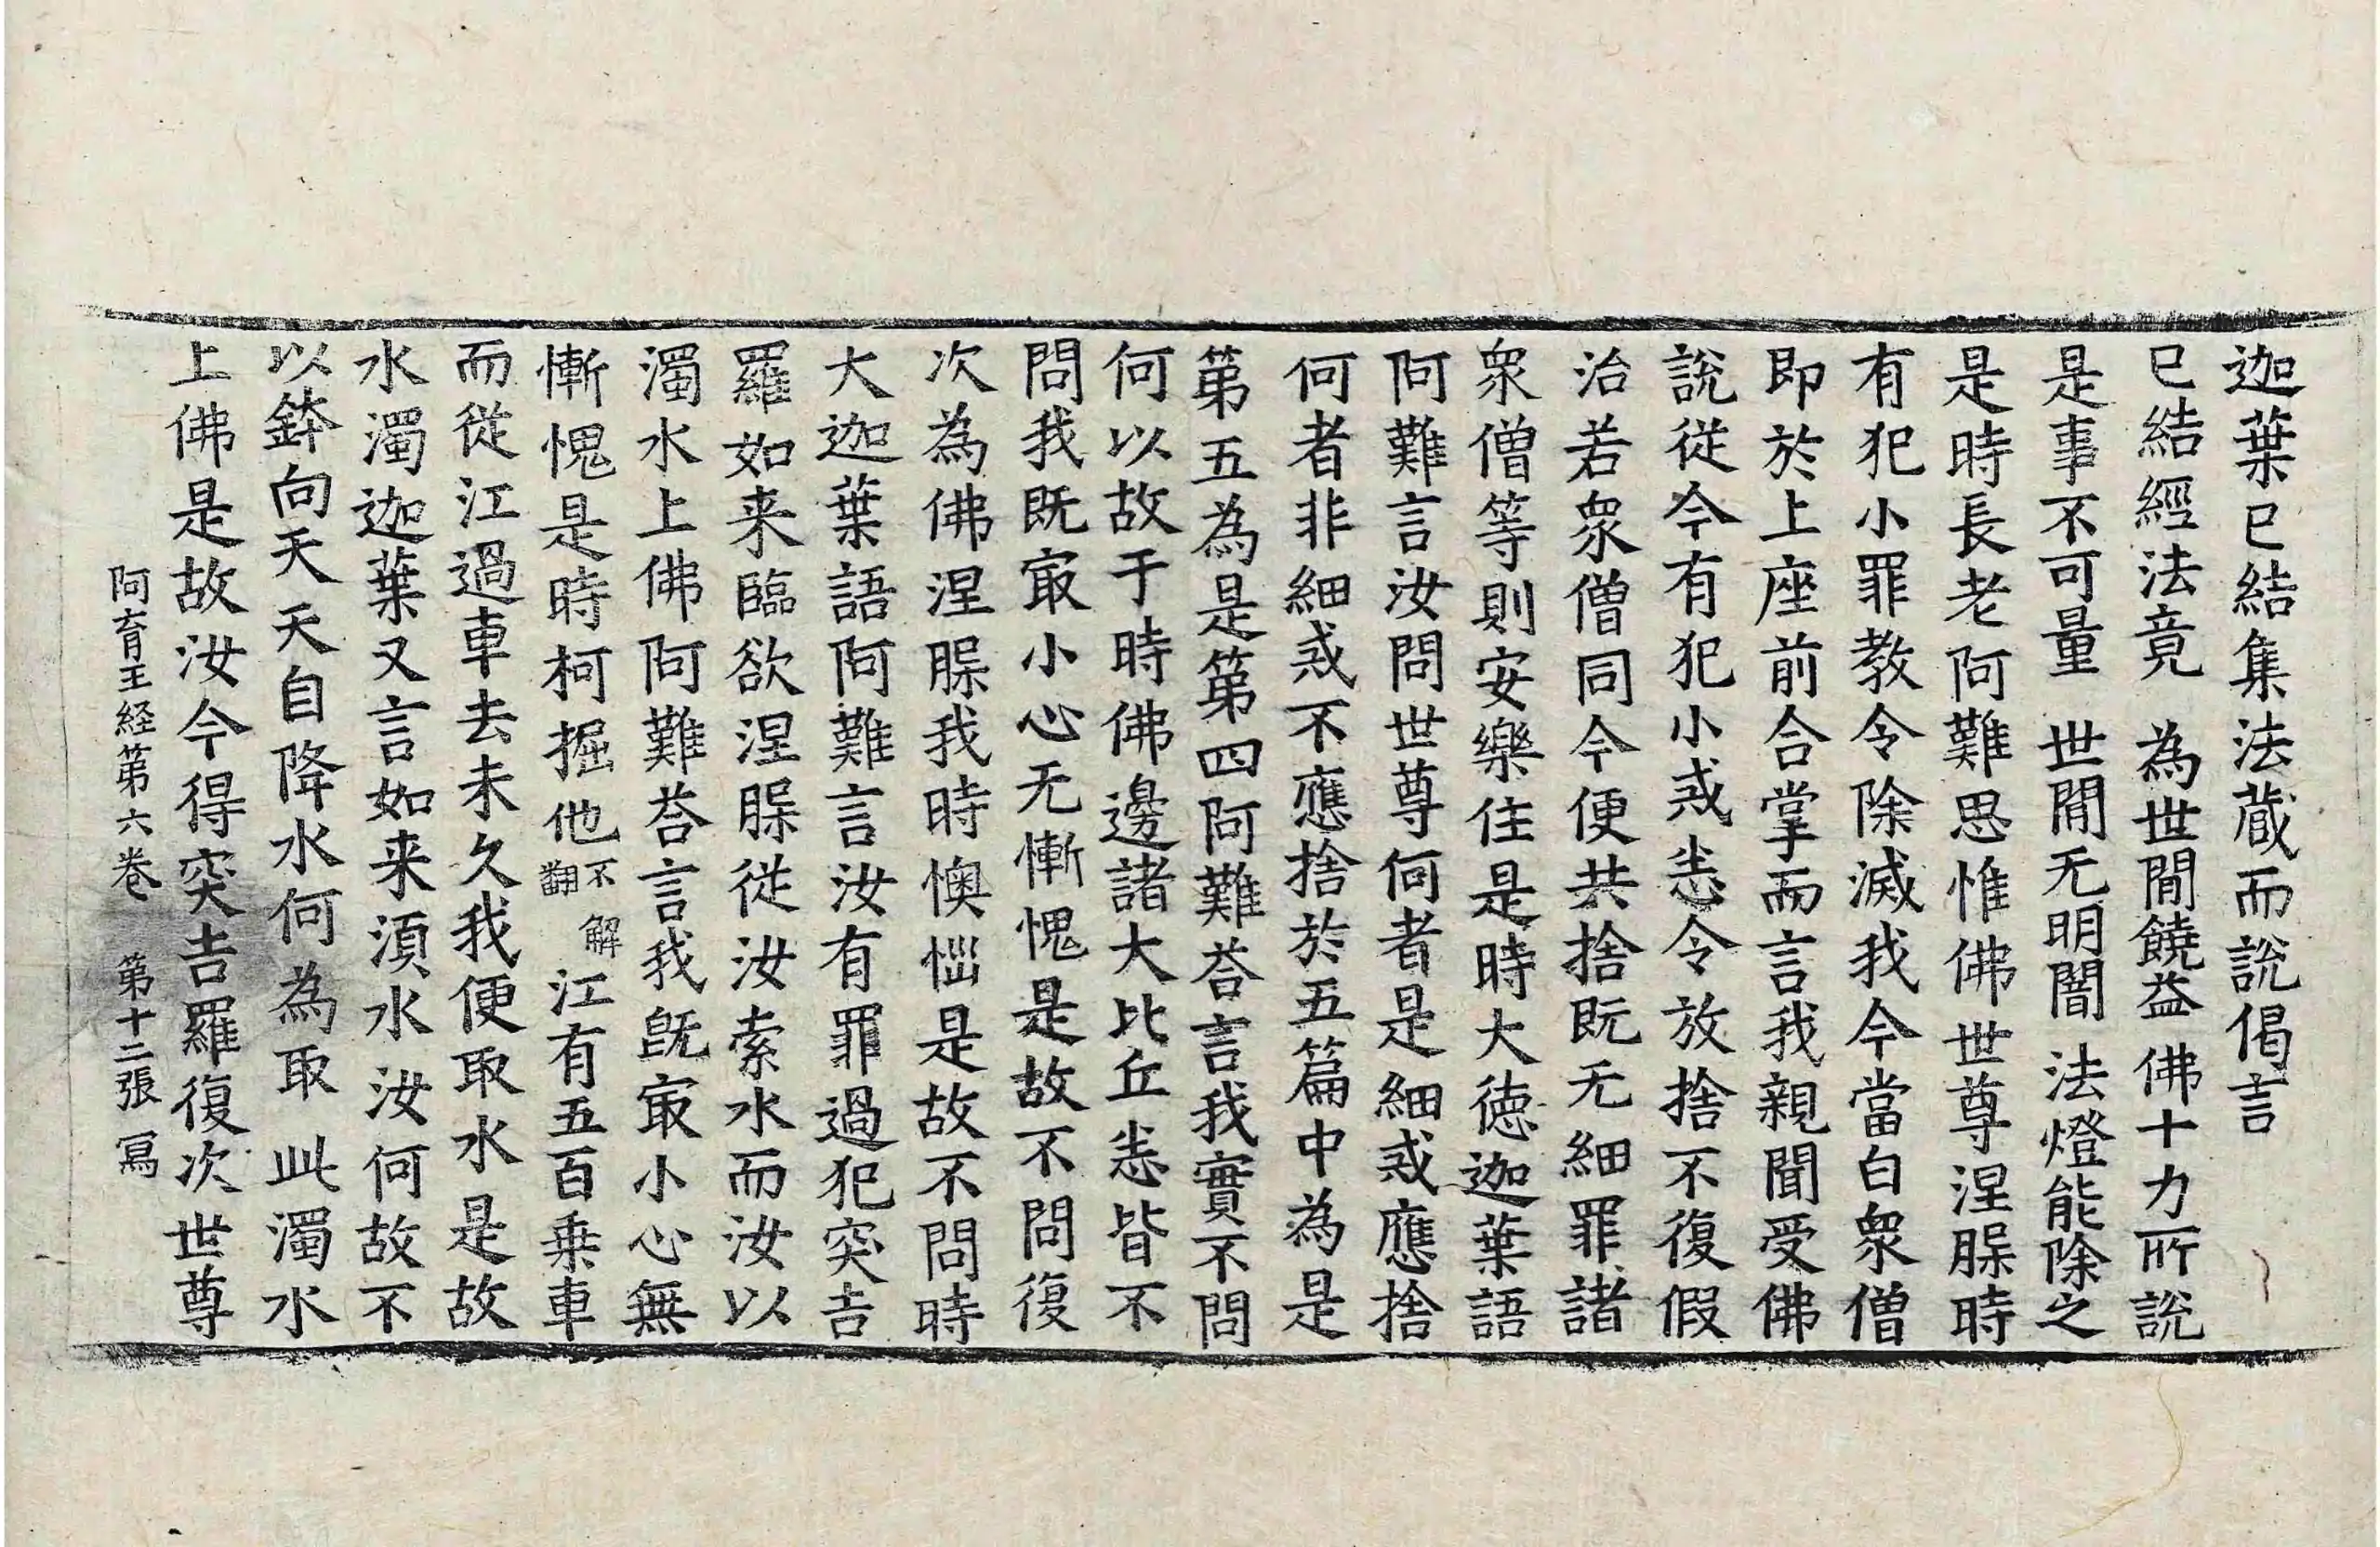 迦葉已結集法蔵而說偈言
已結經法竟　為世間饒益　佛十力所說
是事不可量　世間无明闇　法燈能除之
是時長老阿難思惟佛世尊涅槃時
有犯小罪教令除滅我今當白衆僧
即於上座前合掌而言我親聞受佛
說從今有犯小戒悉令放捨不復假
治若衆僧同今便共捨既无細罪諸
衆僧等則安樂住是時大德迦葉語
阿難言汝問世尊何者是細戒應捨
何者非細戒不應捨於五篇中為是
第五為是第四阿難荅言我實不問
何以故于時佛邊諸大比丘悉皆不
問我既㝡小心无慚愧是故不問復
次為佛涅槃我時懊惱是故不問時
大迦葉語阿難言汝有罪過犯突吉
羅如来臨欲涅槃從汝索水而汝以
濁水上佛阿難荅言我既㝡小心無
慚愧是時柯掘他翻不解江有五百乗車
而從江過車去未久我便取水是故
水濁迦葉又言如来須水汝何故不
以鉢向天天自降水何為取此濁水
上佛是故汝今得突吉羅復次世尊
阿育王経第六卷　第十二張　寫